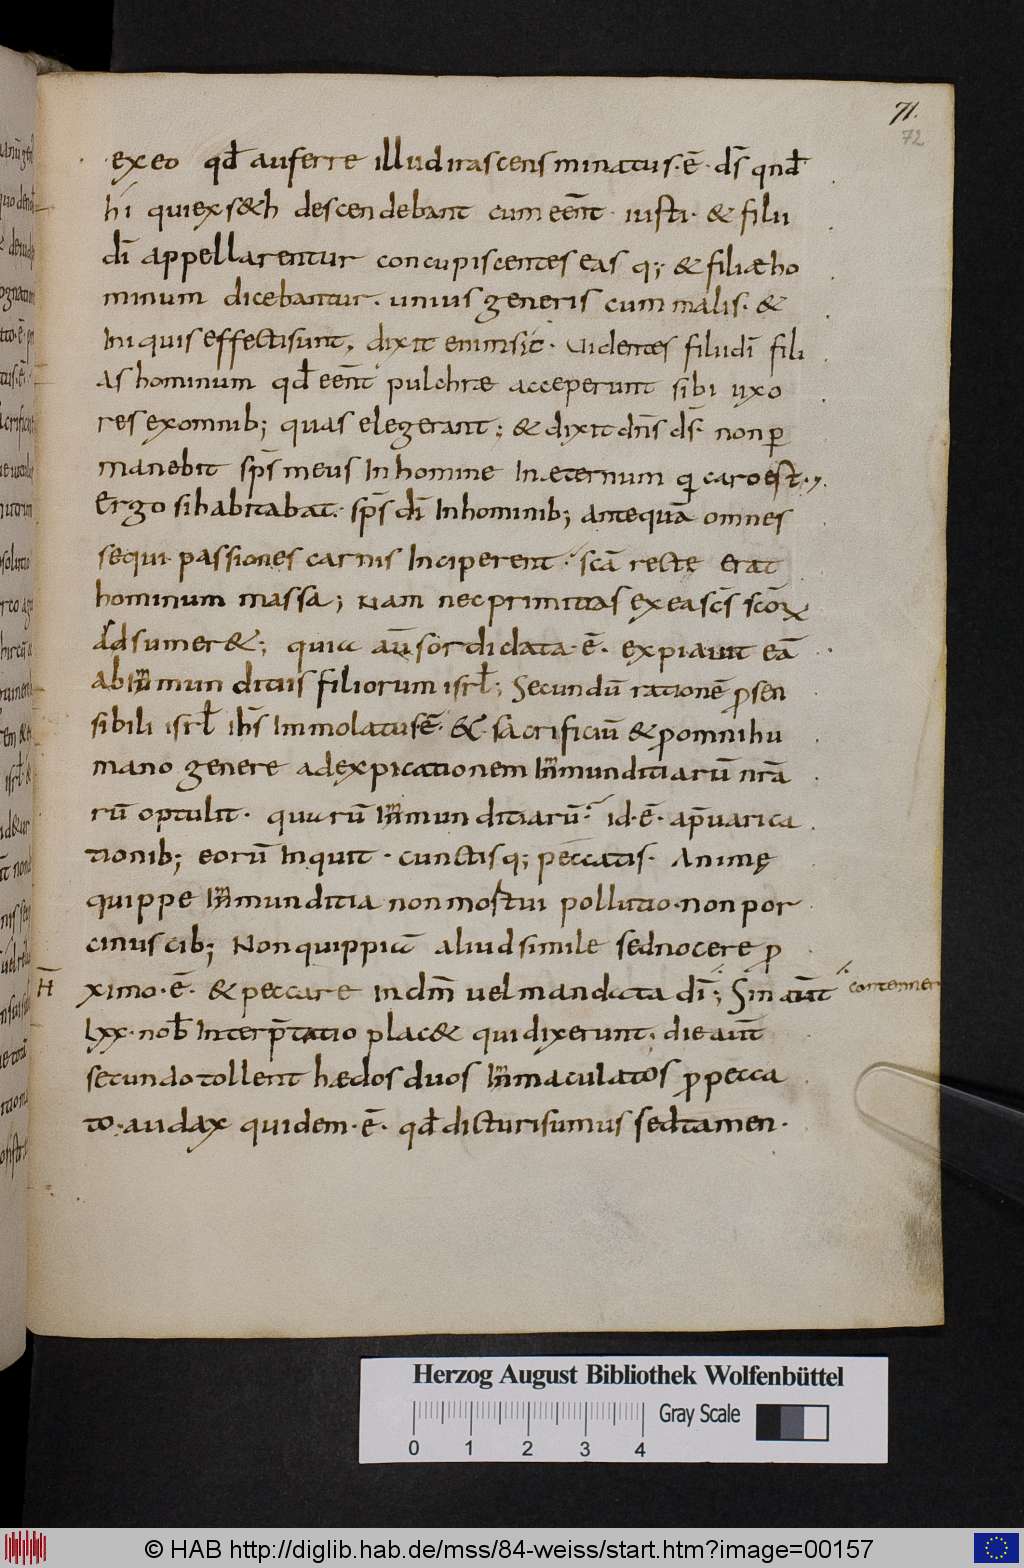 71.
72
ex eo qđ auferre illud irascens minatus · ē · dſ̄ qnđ
hi qui ex s&h descendebant cum eēnt · iusti · & filii
dī appellarentur concupiscentes eas q; & filiæ ho
minum dicebantur · unius generis cum malis · &
iniquis effecti sunt, dixit enim sic · Uidentes filii dī fili
as hominum qđ eēnt pulchræ acceperunt sibi uxo
res ex omnib; quas elegerant; & dixit dn̄s dſ̄ non ꝑ
manebit sp̄s meus In homine In æternum qi caro est ·,
Ergo si habitabat · sp̄s dī In hominib; antequā omnes
sequi passiones carnis Inciperent · sc̄a recte erat
hominum massa; Nam nec primitias ex ea sc̄s sc̄oꝝ
Adsumer&; quia aū sordidata · ē · expiauit eā
ab Inmunditiis filiorum isrł; Secundū rationē ꝓ sen
sibili isrł ih̄s Immolatus ē · & · sacrificiū & ꝓ omni hu
mano genere ad expicationem Inmunditiarū nr̄a
rū optulit · quarū Inmunditiarū · id · ē · ap̄uarica
tionib; eorū Inquit · cunctisq; peccatis · Animę
quippe Inmunditia non mostui pollutio · non por
cinus cib; Non quippiā aliud simile sed nocere ꝓ
ximo · ē · & peccare in dm̄ uel mandata dī; Sin aūt
contemnere
H̄
lxx · nob̄ Interp̄tatio plac& qui dixerunt · die aūt
secundo tollent hædos duos Inmaculatos ꝓ pecca
to · audax quidem · ē · qđ dicturi sumus sed tamen ·
Herzog August Bibliothek Wolfenbüttel
Gray Scale
0 1 2 3 4
© HAB http://diglib.hab.de/mss/84-weiss/start.htm?image=00157